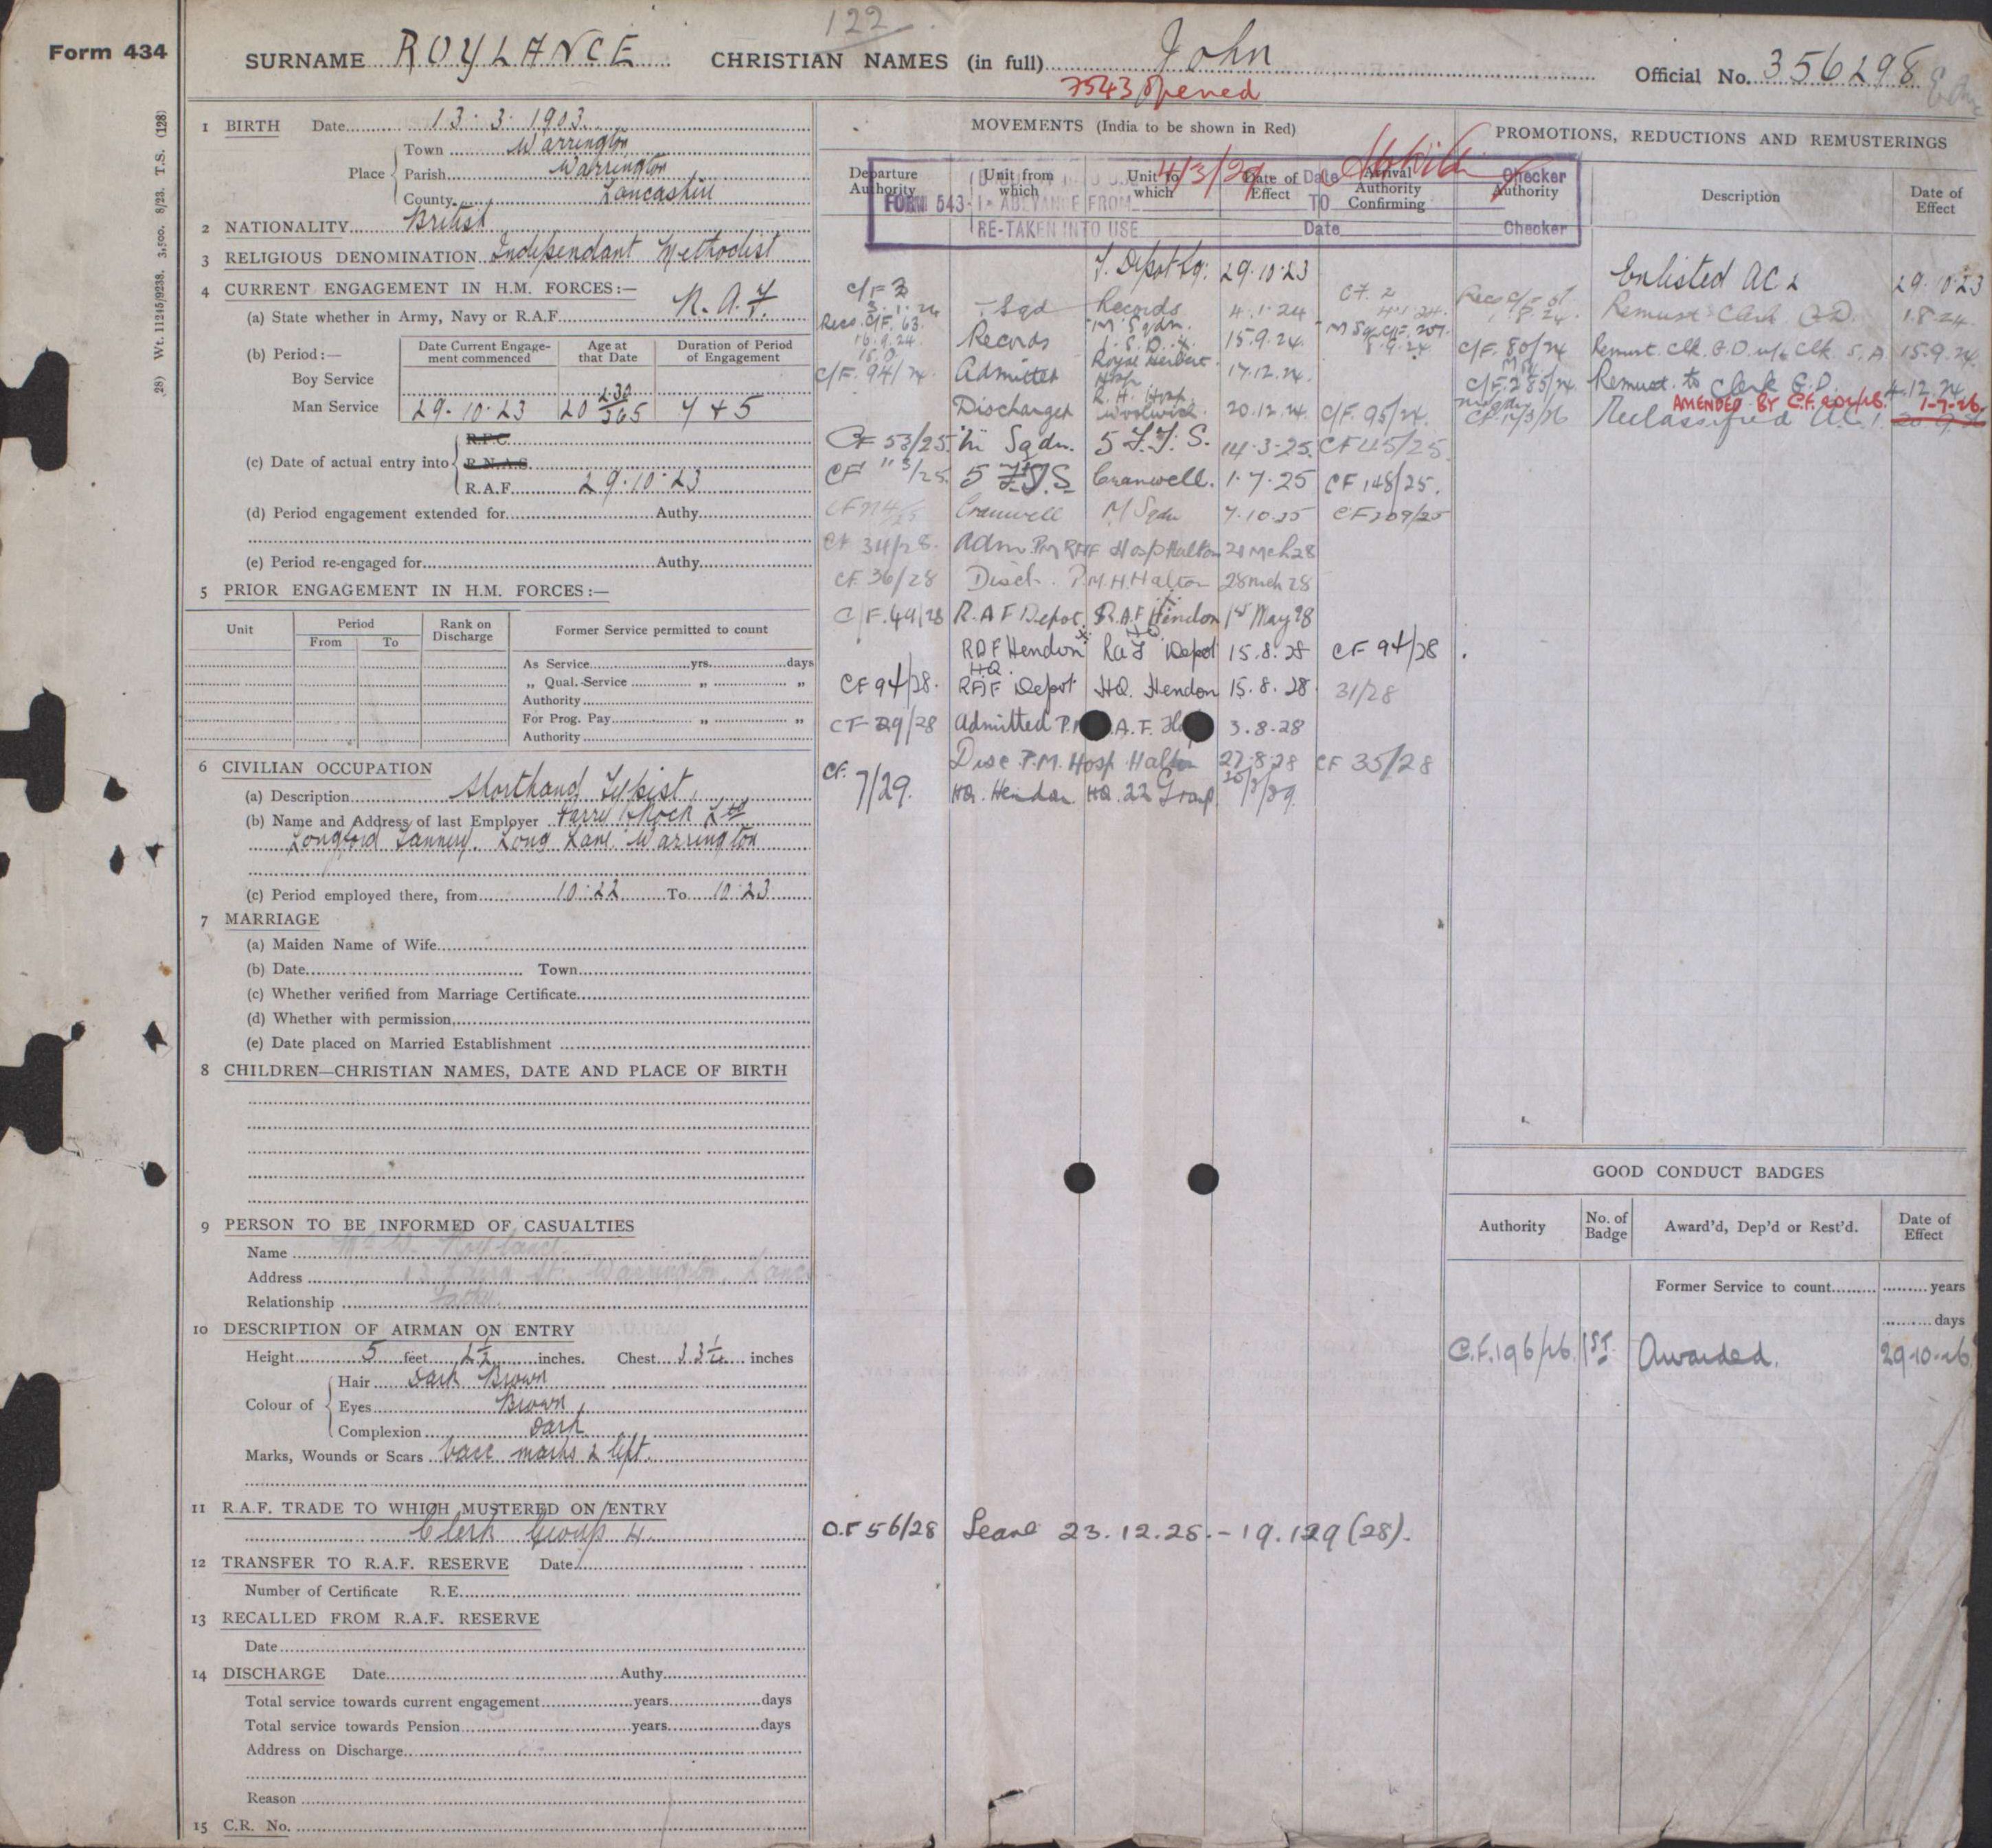 122
Form 434
SURNAME ROYLANCE CHRISTIAN NAMES (in full) John Official No. 356298
7543 opened
28) Wt. 11245/9238. 3,500. 8/23. T.S. (128)
1 BIRTH Date 13.3.1903
Place Town Warrington
Parish Warrington
County Lancashire
2 NATIONALITY British
3 RELIGIOUS DENOMINATION Independant Methodist
4 CURRENT ENGAGEMENT IN H.M. FORCES:—
(a) State whether in Army, Navy or R.A.F. R.A.F.
(b) Period:— Date Current Engagement commenced Age at that Date Duration of Period of Engagement
Boy Service
Man Service 29.10.23 20 230/365 7+5
(c) Date of actual entry into R.F.C.
R.N.A.S.
R.A.F. 29.10.23
(d) Period engagement extended for Authy.
(e) Period re-engaged for Authy.
5 PRIOR ENGAGEMENT IN H.M. FORCES:—
Unit Period Rank on Discharge Former Service permitted to count
From To
As Service yrs. days
„ Qual. Service „ „
Authority
For Prog. Pay „ „
Authority
6 CIVILIAN OCCUPATION
(a) Description Shorthand Typist
(b) Name and Address of last Employer Ltd
Longford Tannery. Long Lane Warrington
(c) Period employed there, from 10.22 To 10.23
7 MARRIAGE
(a) Maiden Name of Wife
(b) Date Town
(c) Whether verified from Marriage Certificate
(d) Whether with permission
(e) Date placed on Married Establishment
8 CHILDREN—CHRISTIAN NAMES, DATE AND PLACE OF BIRTH
9 PERSON TO BE INFORMED OF CASUALTIES
Name Roylance
Address St. Warrington, Lancs
Relationship Father
10 DESCRIPTION OF AIRMAN ON ENTRY
Height 5 feet 2½ inches. Chest 33¼ inches
Colour of Hair Dark Brown
Eyes Brown
Complexion Dark
Marks, Wounds or Scars Vacc marks 2 left.
11 R.A.F. TRADE TO WHICH MUSTERED ON ENTRY
Clerk Group 4.
12 TRANSFER TO R.A.F. RESERVE Date
Number of Certificate R.E.
13 RECALLED FROM R.A.F. RESERVE
Date
14 DISCHARGE Date Authy.
Total service towards current engagement years days
Total service towards Pension years days
Address on Discharge
Reason
15 C.R. No.
MOVEMENTS (India to be shown in Red)
Departure Authority Unit from which Unit to which Date of Effect Arrival Authority Confirming
4/3/29 Date Checker
FORM 543 IN ABEYANCE FROM TO
RE-TAKEN INTO USE Date Checker
Depot 29.10.23
C/F 3 3.1.24 Sqd Records 4.1.24 C.F. 2 4.1.24
Recs. C/F. 63. 16.9.24 Records M Sqdn. 15.9.24 M Sq C/F. 207.
C/F. 94/24. Admitted Royal Herbert Hosp 17.12.24.
Discharged R.H. Hosp. Woolwich. 20.12.24. C/F. 95/24.
CF 53/25. "M" Sqdn. 5 F.T.S. 14.3.25. CF 45/25.
CF 113/25. 5 F.T.S Cranwell. 1.7.25 CF 148/25.
Cranwell M Sqdn 7.10.25 CF 209/25
CF 34/28. Adm. PM RAF Hosp Halton 21 Mch 28
CF. 36/28 Disch. P.M.H. Halton 28 Mch 28
C/F. 49/28 R.A.F Depot R.A.F Hendon 1st May 28
RAF Hendon RAF Depot 15.8.28 CF 94/28
CF 94/28. H.Q. RAF Depot HQ. Hendon 15.8.28. 31/28
CF 29/28 Admitted P.M. R.A.F. Hosp 3.8.28
Disc P.M. Hosp Halton 27.8.28 CF 35/28
CF. 7/29. HQ. Hendon HQ. 22 Group
O.F 56/28 Leave 23.12.28. – 19.1.29 (28).
PROMOTIONS, REDUCTIONS AND REMUSTERINGS
Authority Description Date of Effect
Enlisted AC 2 29.10.23
Remust Clerk G.D. 1.8.24.
C/F. 80/24 Remust. Clk. G.D. to Clk. S.A 15.9.24.
C/F. 285/24. Remust. to Clerk G.D. 4.12.24
AMENDED BY C.F. 1-7-26.
Reclassified A.C.1.
GOOD CONDUCT BADGES
Authority No. of Badge Award'd, Dep'd or Rest'd. Date of Effect
Former Service to count years
days
C.F. 196/26. 1ST. Awarded. 29-10-26.